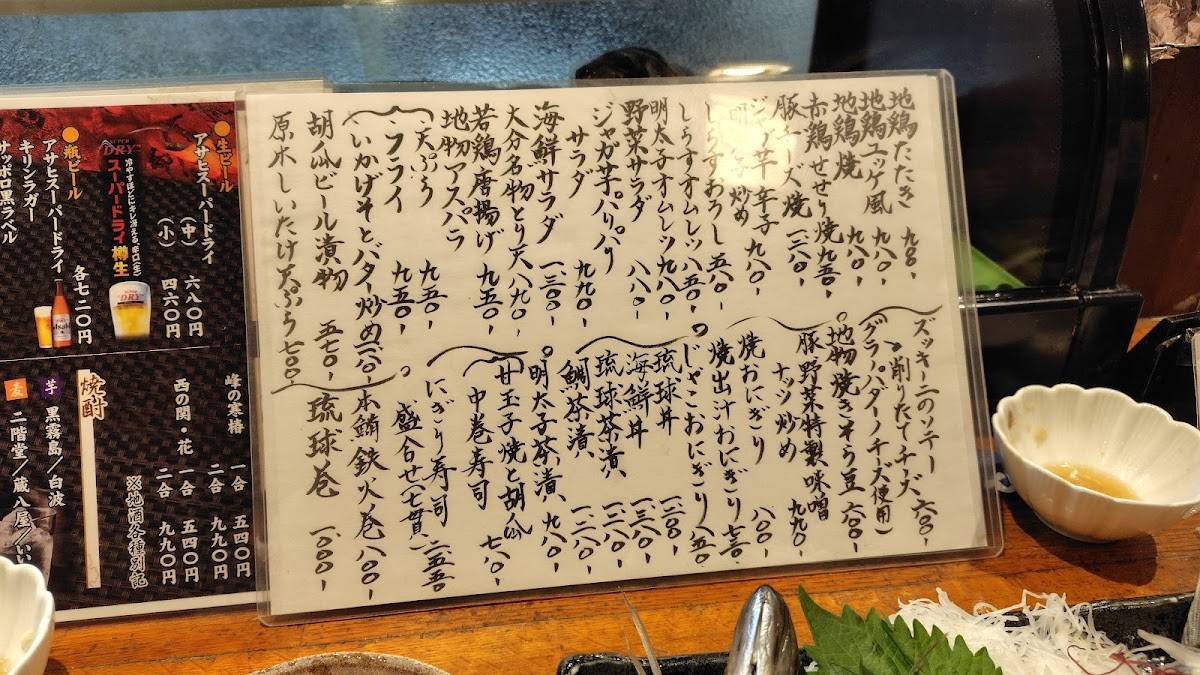 地鶏たたき 九八〇-
地鶏ユッケ風 九八〇-
地鶏焼 九八〇-
赤鶏せせり焼 九五〇-
豚チーズ焼 一三八〇-
ジャガ芋辛子
明太子炒め 九八〇-
しらすおろし 五八〇-
しらすオムレツ 八五〇-
明太子オムレツ 九八〇-
野菜サラダ 八八〇-
ジャガ芋パリパリ
サラダ 九九〇-
海鮮サラダ 一三〇〇-
大分名物とり天 八九〇-
若鶏唐揚げ 九五〇-
地物アスパラ
天ぷら 九五〇-
フライ 九五〇-
いかげそとバター炒め
胡瓜ビール漬物 五七〇-
原木しいたけ天ぷら 七〇〇-
ズッキーニのソテー 六〇〇-
削りたてチーズ
(グラ・パダーノチーズ使用)
地物焼きそら豆 六〇〇-
豚野菜特製味噌
ナッツ炒め 九九〇-
焼おにぎり 八〇〇-
焼出汁おにぎり
じゃこおにぎり
琉球丼
海鮮丼
琉球茶漬、
鯛茶漬
明太子茶漬、 九八〇-
甘玉子焼と胡瓜
中巻寿司 七八〇-
にぎり寿司
盛合せ(七貫) 二五五〇
本鮪鉄火巻 一八〇〇-
琉球巻 一〇〇〇-
●生ビール
アサヒスーパードライ
(中) 六八〇円
(小) 四六〇円
SUPER DRY
冷やすほどにキレ冴える、辛口〈生〉
スーパードライ 樽生
●瓶ビール
アサヒスーパードライ
キリンラガー
サッポロ黒ラベル
各七二〇円
峰の寒椿 一合 五四〇円
二合 九九〇円
西の関・花 一合 五四〇円
二合 九九〇円
※地酒各種別記
焼酎
芋 黒霧島/白波
麦 二階堂/蔵八屋/いい